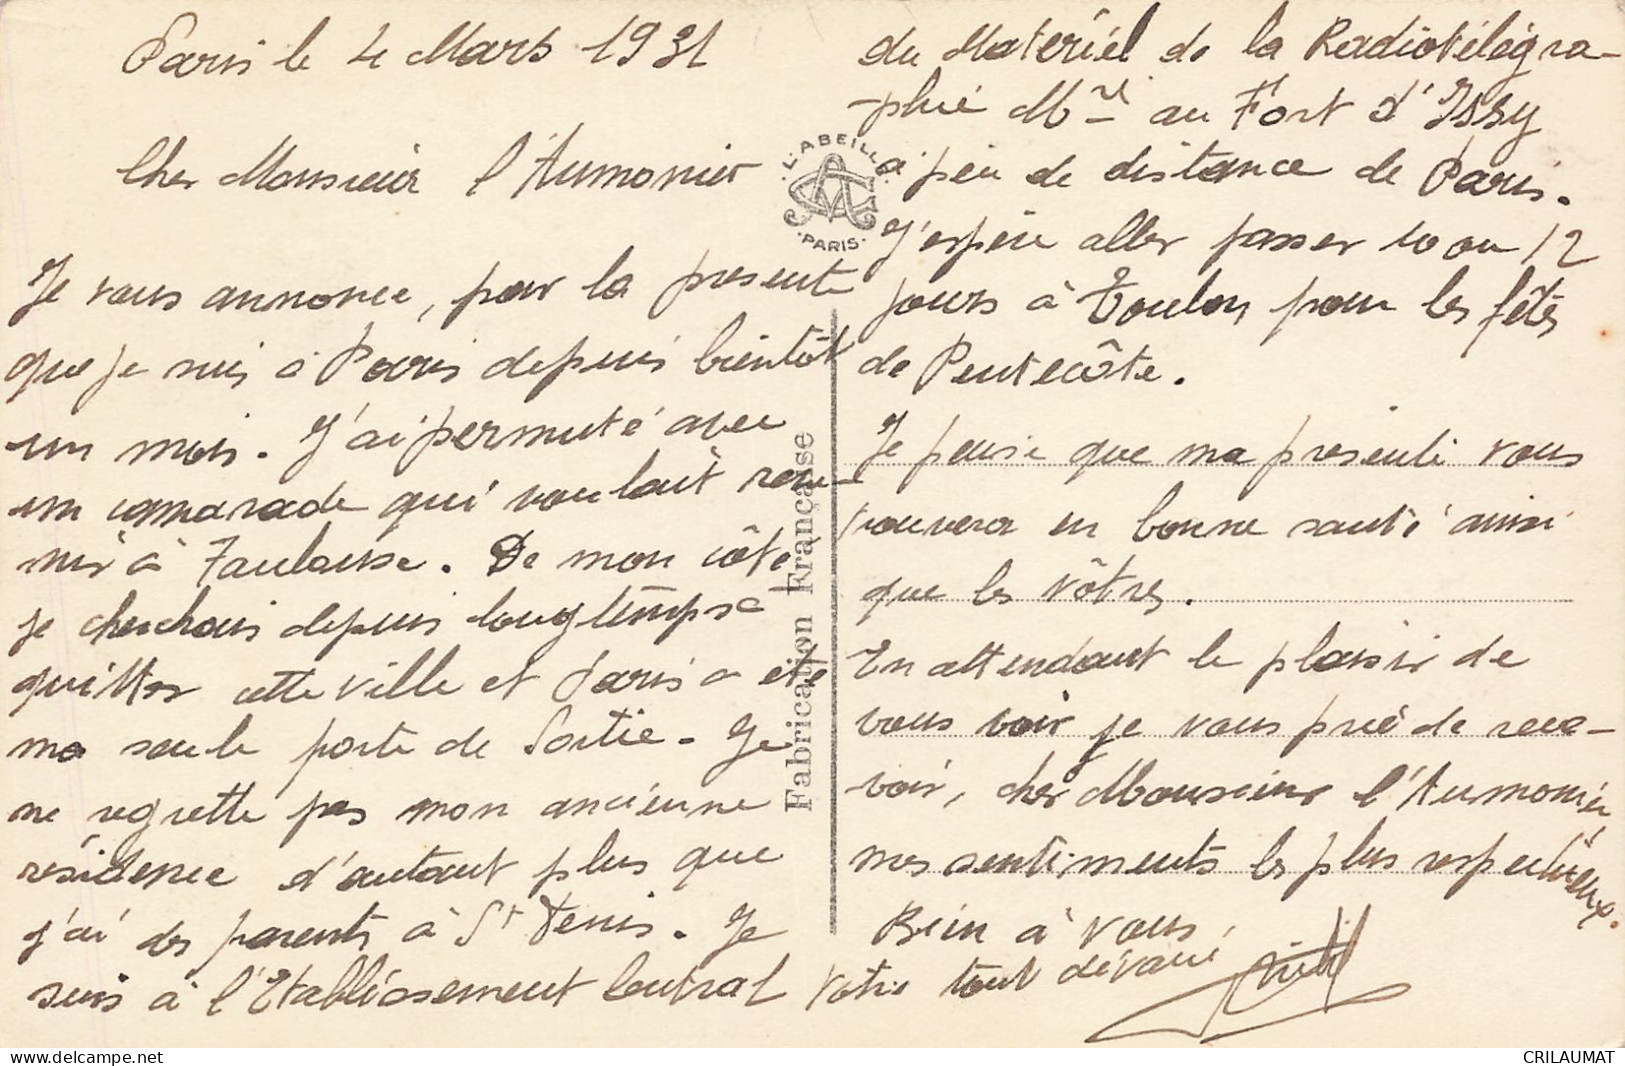 Paris le 4 Mars 1931
Cher Monsieur l'Aumonier
Je vous annonce, par la presente
que je suis à Paris depuis bientôt
un mois. J'ai permuté avec
un camarade qui voulait reve-
nir à Toulouse. De mon côté
je cherchais depuis longtemps à
quitter cette ville et Paris a été
ma seule porte de Sortie. Je
ne regrette pas mon ancienne
résidence d'autant plus que
j'ai des parents à St Denis. Je
suis à l'Etablissement Central
du Matériel de la Radiotélégra-
-phie Mre au Fort d'Issy
à peu de distance de Paris.
J'espère aller passer 10 ou 12
jours à Toulon pour les fêtes
de Pentecôte.
Je pense que ma presente vous
trouvera en bonne santé ainsi
que les vôtres.
En attendant le plaisir de
vous voir je vous prie de rece-
voir, cher Monsieur l'Aumonier
mes sentiments les plus respectueux.
Bien à vous,
Votre tout dévoué
L'ABEILLE
PARIS
Fabrication Française
CRILAUMAT
delcampe.net